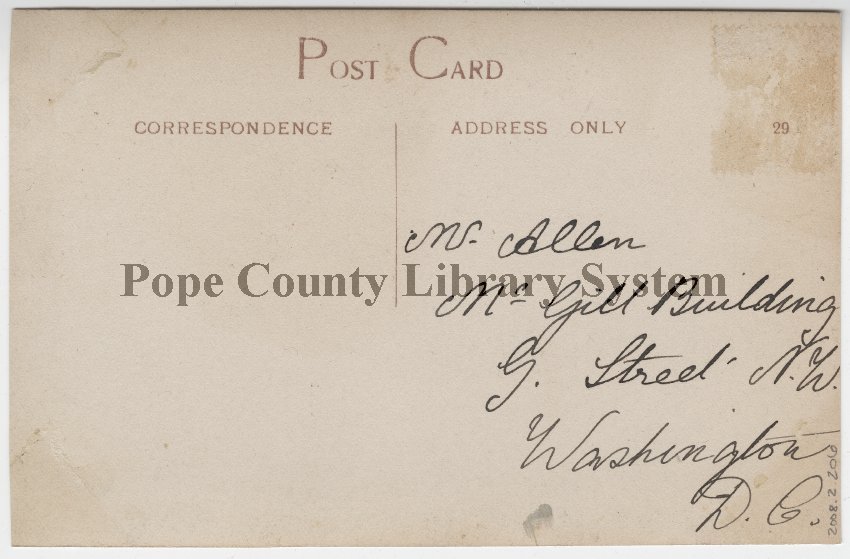 POST CARD
CORRESPONDENCE
ADDRESS ONLY
29
Mr. Allen
Pope County Library System
Mc Gill Building
G. Street N.W.
Washington
D. C.
2008.2.206